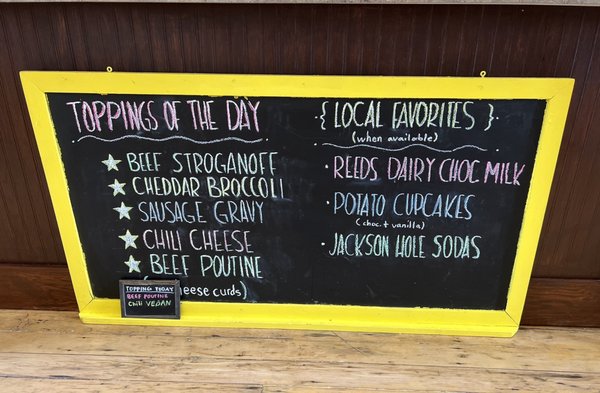 TOPPINGS OF THE DAY
BEEF STROGANOFF
CHEDDAR BROCCOLI
SAUSAGE GRAVY
CHILI CHEESE
BEEF POUTINE
eese curds)
TOPPING TODAY
BEEF POUTINE
Chili VEGAN
{ LOCAL FAVORITES }
(when available)
· REEDS DAIRY CHOC MILK
· POTATO CUPCAKES
(choc. + vanilla)
· JACKSON HOLE SODAS